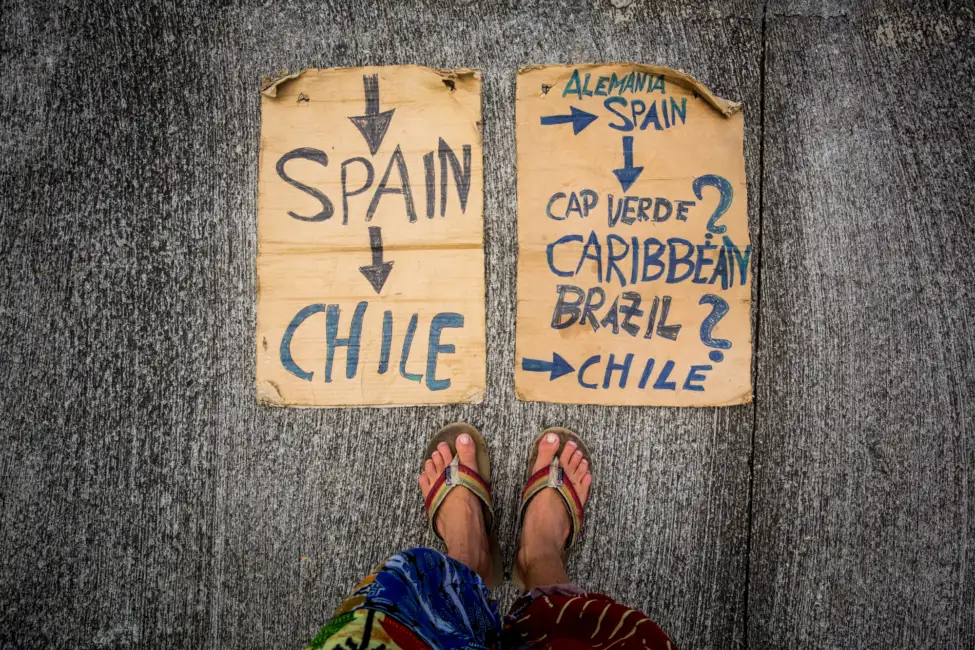 SPAIN
CHILE
ALEMANIA
SPAIN
CAP VERDE ?
CARIBBEAN
BRAZIL ?
CHILE